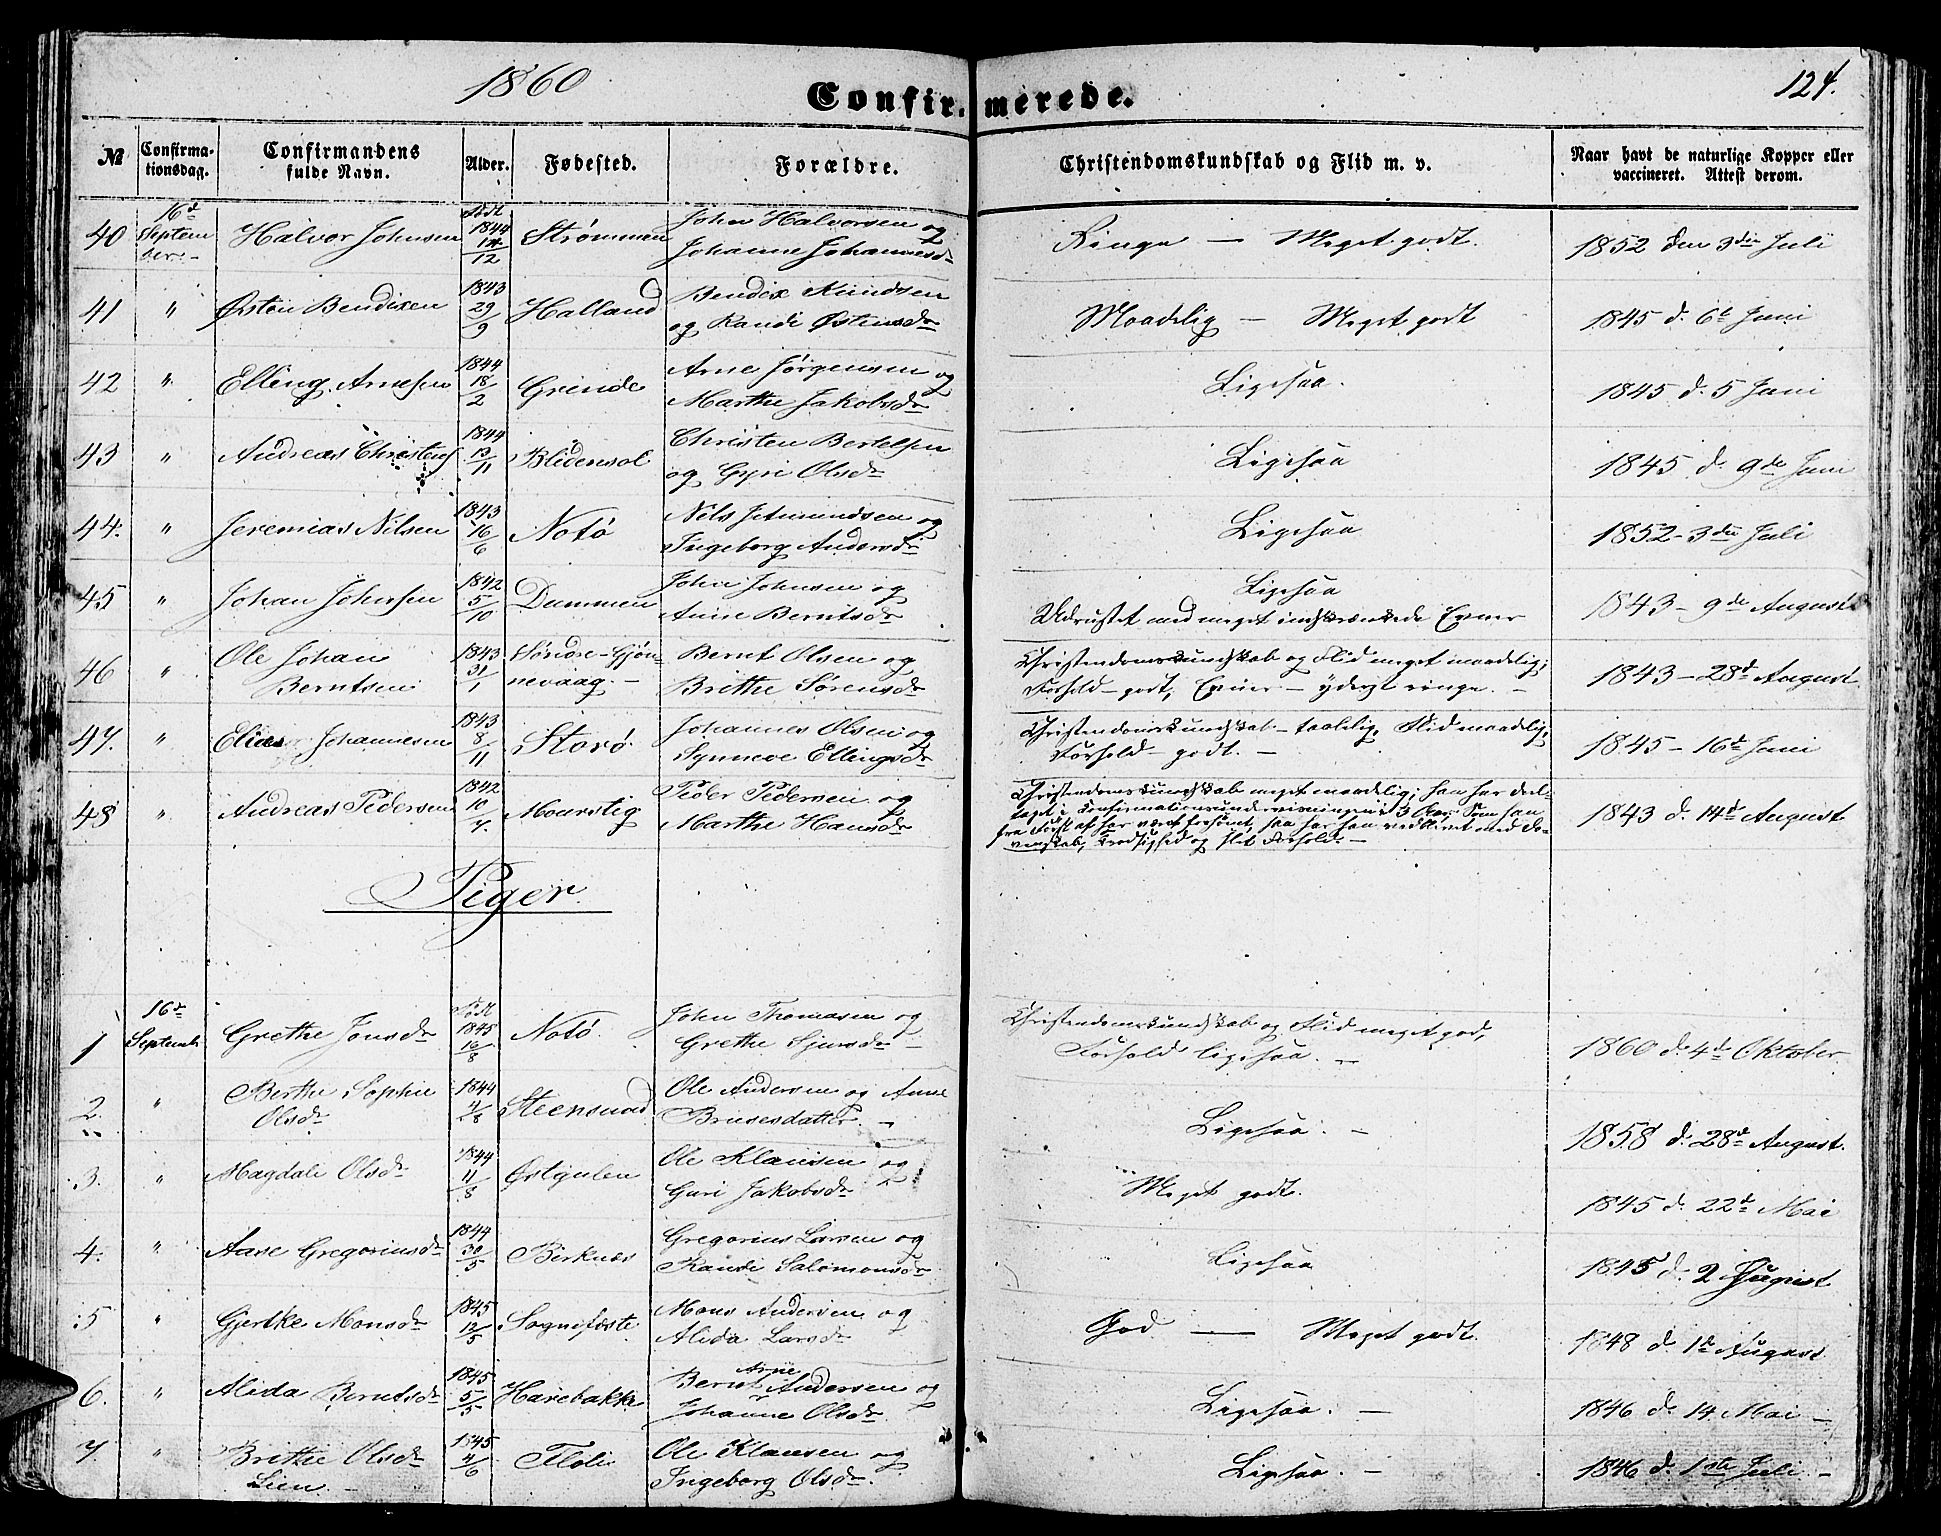 1860
Confirmerede.
124.
No
Confirma-
tionsdag.
Confirmandens
fulde Navn.
Alder.
Fødested.
Forældre.
Christendomskundskab og Flid m. v.
Naar havt de naturlige Kopper eller
vaccineret. Attest derom.
40 16d Septem ber. Halvor Johnsen Født 1844 14/12 Strømmen John Halvorsen og
Johanne Johannesdr
Ringe — Meget godt. 1852 den 3die Juli
41 " Østen Bendixen 1843 29/9 Halland Bendix Knudsen
og Randi Østensdr
Maadelig — Meget godt 1845 d. 6t Juni
42 " Elling Arnesen 1844 18/2 Grinde Arne Jørgensen og
Marthe Jakobsdr
Ligesaa. 1845 d. 5 Juni
43 " Andreas Christens 1844 13/11 Blidensol Christen Bertelsen
og Gyri Olsdr
Ligesaa 1845 d. 9de Juni
44. " Jeremias Nilsen 1843 16/6 Notø Nels og
Ingeborg Andersdr
Ligesaa 1852 - 3die Juli
45 " Johan Johnsen 1842 5/10 Dammen John Johnsen og
Anne Berntsdr
Ligesaa
Udrustet med meget indskrænkede Evner
1843 - 9de August
46 " Ole Johan
Berntsen 1843 31/1 Søndre-Gjøn-
nevaag. - Bernt Olsen og
Brithe Sørensdr
Christendomskundskab og Flid meget maadelig;
Forhold - godt; Evner - yderst ringe. -
1843 - 28d August
47. " Elias Johannesen 1843 8/11 Storø Johannes Olsen og
Synneve Ellingsdr
Christendomskundskab - taalelig, Flid maadelig,
Forhold - godt. -
1845 - 16d Juni
48 " Andreas Pedersen 1842 10/7. Mourstig Peder Pedersen og
Marthe Hansdr
Christendomskundskab meget maadelig; han har deel-
taget i Confirmationsundervisningen i 3 Aar. Som han
fra Først af har været forsømt, saa har han vedblivet med Do-
venskab, Trodsighed og slet Forhold. -
1843 d. 14d August
Piger.
1 16d Septemb. Grethe Jonsdr Født 1845 16/8 Notø John Thomasen og
Grethe Sjursdr -
Christendomskundskab og Flid meget god,
Forhold ligesaa. -
1860 d. 4d Oktober
2. " Berthe Sophie
Olsdr 1844 4/8 Steensund Ole Andersen og Anne
Brusesdatter. -
Ligesaa. - 1858 d. 28d August.
3. " Magdali Olsdr 1844 11/8 Østgulen Ole Klausen og
Guri Jakobsdr
Meget godt. 1845 d. 22d Mai
4. " Aase Gregoriusdr 1844 30/5 Birknæs Gregorius Larsen og
Randi Salomonsdr
Ligesaa 1845 d. 2 August
5 " Gjertke Monsdr 1845 12/5 Sognefæste Mons Andersen og
Alida Larsdr
God — Meget godt. 1848 d. 1d August
6. " Alida Berntsdr 1845 5/5 Harebakke Bernt Arne Andersen og
Johanne Olsdr
Ligesaa. - 1846 d. 14 Mai -
7. " Brithe Olsdr
Lien. - 1845 4/6 Flolie Ole Klausen og
Ingeborg Olsdr.
Ligesaa. - 1846 d. 1ste Juli. -